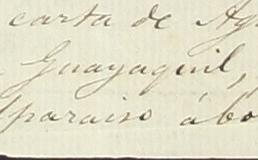 carta de Ag
Guayaquil,
lparaiso á bo